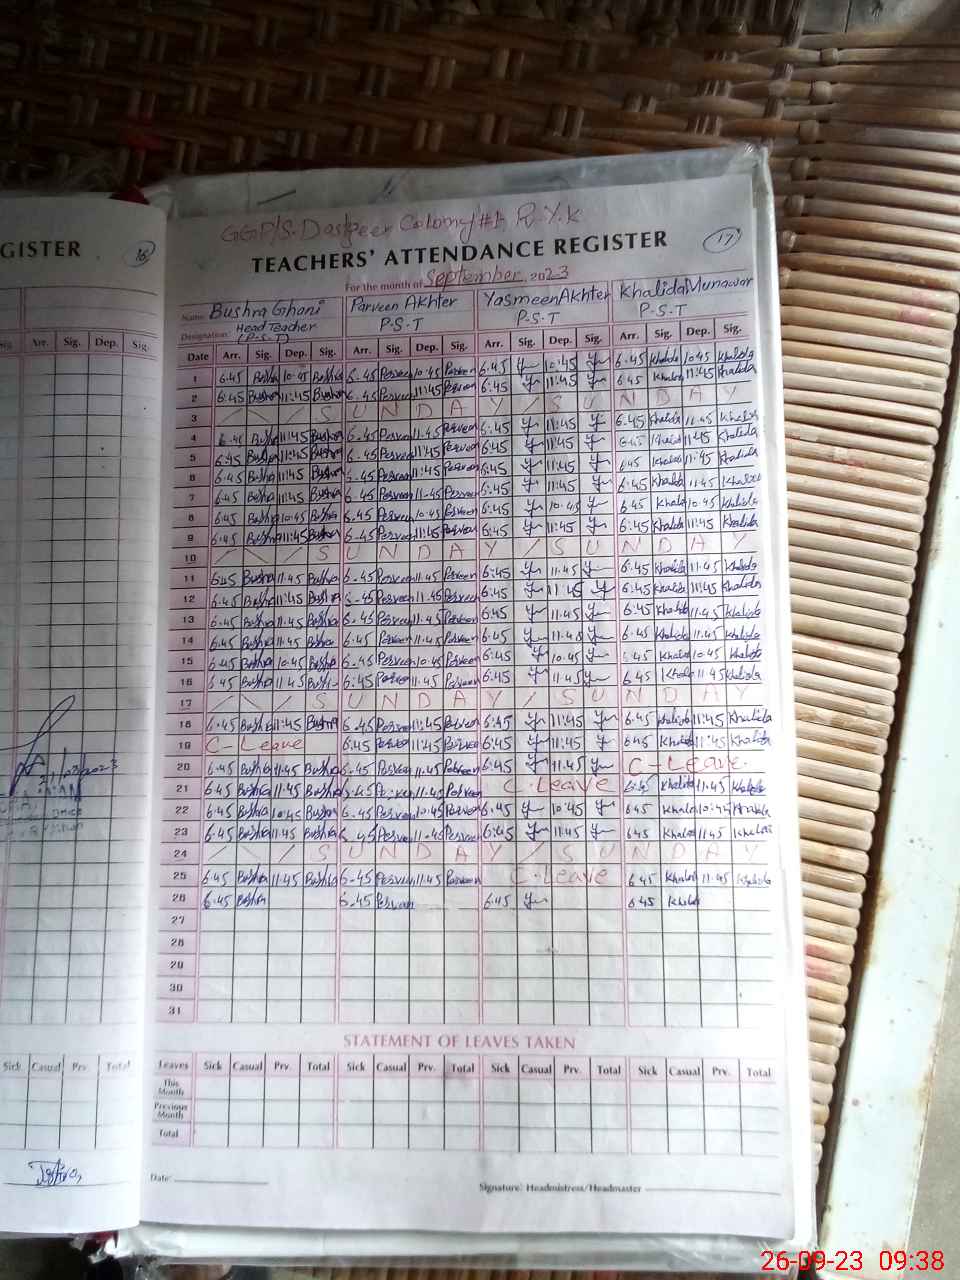 GISTER
16
GGP/S. Dastgeer Colony #1 R.Y.K
17
TEACHERS' ATTENDANCE REGISTER
For the month of September 2023
Name: Bushra Ghani Parveen Akhter Yasmeen Akhter Khalida Munawar
Designation: Head Teacher (P.S.T) P.S.T P.S.T P.S.T
Date Arr. Sig. Dep. Sig. Arr. Sig. Dep. Sig. Arr. Sig. Dep. Sig. Arr. Sig. Dep. Sig.
1 6.45 Bushra 10.45 Bushra 6.45 Parveen 10.45 Parveen 6:45 10:45 6.45 Khalida 10.45 Khalida
2 6:45 Bushra 11:45 Bushra 6.45 Parveen 11:45 Parveen 6:45 11:45 6.45 Khalida 11:45 Khalida
3 / \ / S U N D A Y / S U N D A Y
4 Bushra 11:45 Bushra 6.45 Parveen 11.45 Parveen 6:45 11:45 6.45 Khalida 11.45 Khalida
5 6:45 Bushra 11:45 Bushra 6.45 Parveen 11:45 Parveen 6:45 11:45 Khalida 11:45 Khalida
6 6.45 Bushra 11:45 Bushra 6.45 Parveen 11:45 Parveen 6:45 11:45 6.45 Khalida 11:45 Khalida
7 6.45 Bushra 11:45 Bushra 6.45 Parveen 11.45 Parveen 6:45 11:45 6.45 Khalida 11.45 Khalida
8 6.45 Bushra 10.45 Bushra 6.45 Parveen 10.45 Parveen 6:45 10.45 6.45 Khalida 10.45 Khalida
9 6.45 Bushra 11:45 Bushra 6.45 Parveen 11:45 Parveen 6:45 11:45 6:45 Khalida 11:45 Khalida
10 / \ / S U N D A Y / S U N D A Y
11 6.45 Bushra 11.45 Bushra 6.45 Parveen 11.45 Parveen 6:45 11.45 6.45 Khalida 11.45 Khalida
12 6.45 Bushra 11:45 Bushra 6.45 Parveen 11.45 Parveen 6:45 11:45 6.45 Khalida 11:45 Khalida
13 6.45 Bushra 11.45 Bushra 6.45 Parveen 11.45 Parveen 6.45 11.45 6.45 Khalida 11.45 Khalida
14 6.45 Bushra 11.45 Bushra 6.45 Parveen 11.45 Parveen 6:45 6.45 Khalida 11.45 Khalida
15 6.45 Bushra 10.45 Bushra 6.45 Parveen 10.45 Parveen 6:45 10.45 6.45 Khalida 10.45 Khalida
16 6.45 Bushra 11.45 Bushra 6.45 Parveen 11.45 Parveen 6:45 11.45 6.45 Khalida 11.45 Khalida
17 / \ / S U N D A Y / S U N D A Y
18 6.45 Bushra 11:45 Bushra 6.45 Parveen 11:45 Parveen 6:45 11:45 6.45 Khalida 11:45 Khalida
19 C-Leave 6:45 Parveen 11:45 Parveen 6:45 11:45 6.45 Khalida 11:45 Khalida
20 6.45 Bushra 11:45 Bushra 6.45 Parveen 11.45 Parveen 6:45 11.45 C-Leave.
21 6.45 Bushra 11:45 Bushra 6.45 Parveen 11.45 Parveen C.Leave 6.45 Khalida 11.45 Khalida
22 6.45 Bushra 10:45 Bushra 6.45 Parveen 10.45 Parveen 6.45 10:45 6.45 Khalida 10:45 Khalida
23 6.45 Bushra 11.45 Bushra 6.45 Parveen 11.45 Parveen 6:45 11:45 6.45 Khalida 11.45 Khalida
24 / \ / S U N D A Y / S U N D A Y
25 6.45 Bushra 11.45 Bushra 6.45 Parveen 11.45 Parveen C.Leave 6.45 Khalida 11.45 Khalida
26 6.45 Bushra 6.45 Parveen 6.45 6.45 Khalida
27
28
29
30
31
STATEMENT OF LEAVES TAKEN
Leaves Sick Casual Prv. Total Sick Casual Prv. Total Sick Casual Prv. Total Sick Casual Prv. Total
This Month
Previous Month
Total
Date:
Signature: Headmistress/Headmaster
Sig. Arr. Sig. Dep. Sig.
Sick Casual Prv. Total
26-09-23 09:38